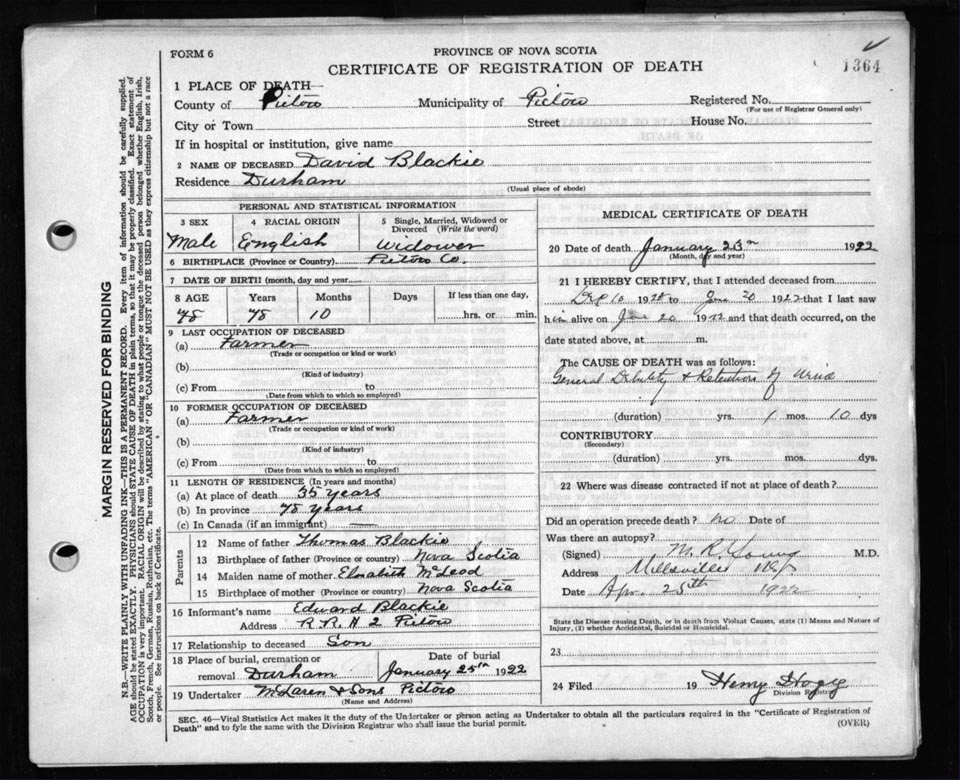 FORM 6
PROVINCE OF NOVA SCOTIA
CERTIFICATE OF REGISTRATION OF DEATH
1364
1 PLACE OF DEATH—
County of Pictou Municipality of Pictou Registered No.
(For use of Registrar General only)
City or Town Street House No.
If in hospital or institution, give name
2 NAME OF DECEASED David Blackie
Residence Durham
(Usual place of abode)
PERSONAL AND STATISTICAL INFORMATION
3 SEX 4 RACIAL ORIGIN 5 Single, Married, Widowed or Divorced (Write the word)
Male English Widower
6 BIRTHPLACE (Province or Country) Pictou Co.
7 DATE OF BIRTH (month, day and year
8 AGE Years Months Days If less than one day,
78 78 10 hrs. or min.
9 LAST OCCUPATION OF DECEASED
(a) Farmer
(Trade or occupation or kind or work)
(b)
(Kind of industry)
(c) From to
(Date from which to which so employed)
10 FORMER OCCUPATION OF DECEASED
(a) Farmer
(Trade or occupation or kind of work)
(b)
(Kind of industry)
(c) From to
(Date from which to which so employed)
11 LENGTH OF RESIDENCE (In years and months)
(a) At place of death 35 years
(b) In province 78 years
(c) In Canada (if an immigrant)
Parents
12 Name of father Thomas Blackie
13 Birthplace of father (Province or country) Nova Scotia
14 Maiden name of mother Elizabeth McLeod
15 Birthplace of mother (Province or country) Nova Scotia
16 Informant's name Edward Blackie
Address R.R. # 2 Pictou
17 Relationship to deceased Son
18 Place of burial, cremation or removal Durham Date of burial January 25th 1922
19 Undertaker McLaren & Sons Pictou
(Name and Address)
MEDICAL CERTIFICATE OF DEATH
20 Date of death January 23rd 1922
(Month, day and year)
21 I HEREBY CERTIFY, that I attended deceased from
Dec 10 to Jan 20 1922 that I last saw
him alive on Jan 20 1922 and that death occurred, on the
date stated above, at m.
The CAUSE OF DEATH was as follows:
General Debility & Retention of Urine
(duration) yrs. 1 mos. 10 dys
CONTRIBUTORY
(Secondary)
(duration) yrs. mos. dys.
22 Where was disease contracted if not at place of death?
Did an operation precede death? no Date of
Was there an autopsy?
(Signed) M. R. Young M.D.
Address Millsville
Date Apr. 25th 1922
State the Disease causing Death, or in death from Violent Causes, state (1) Means and Nature of
Injury, (2) whether Accidental, Suicidal or Homicidal.
23
24 Filed 19 Henry
Division Registrar
SEC. 46—Vital Statistics Act makes it the duty of the Undertaker or person acting as Undertaker to obtain all the particulars required in the "Certificate of Registration of
Death" and to fyle the same with the Division Registrar who shall issue the burial permit. (OVER)
MARGIN RESERVED FOR BINDING
N.B.—WRITE PLAINLY WITH UNFADING INK—THIS IS A PERMANENT RECORD. Every item of information should be carefully supplied.
AGE should be stated EXACTLY. PHYSICIANS should STATE CAUSE OF DEATH in plain terms, so that it may be properly classified. Exact statement of
OCCUPATION is very important. RACIAL ORIGIN will be described by stating to what people or tongue the deceased person belonged whether English, Irish,
Scotch, French, German, Russian, Ruthenian, etc. The terms "AMERICAN" OR "CANADIAN" MUST NOT BE USED as they express citizenship but not a race
or people. See instructions on back of Certificate.